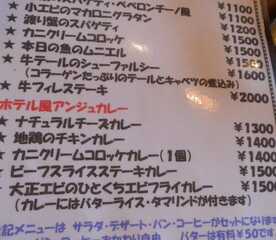 スパゲティ・ペペロンチーノ風 ¥1100
★ 小エビのマカロニグラタン ¥1100
★ 渡り蟹のスパゲティ ¥1200
★ カニクリームコロッケ ¥1200
★ 本日の魚のムニエル ¥1500
★ 牛テールのシューファルシー
(コラーゲンたっぷりのテールとキャベツの煮込み) ¥1600
★ 牛フィレステーキ ¥2000
ホテル風アンジュカレー
★ ナチュラルチーズカレー ¥1300
★ 地鶏のチキンカレー ¥1400
★ カニクリームコロッケカレー(1個) ¥1400
★ ビーフスライスステーキカレー ¥1500
★ 大正エビのひとくちエビフライカレー ¥1500
(カレーにはバターライス・タマリンドが付きます)
記メニューは サラダ・デザート・パン・コーヒーがセットになります
おかわり自由 バターは有料¥50で